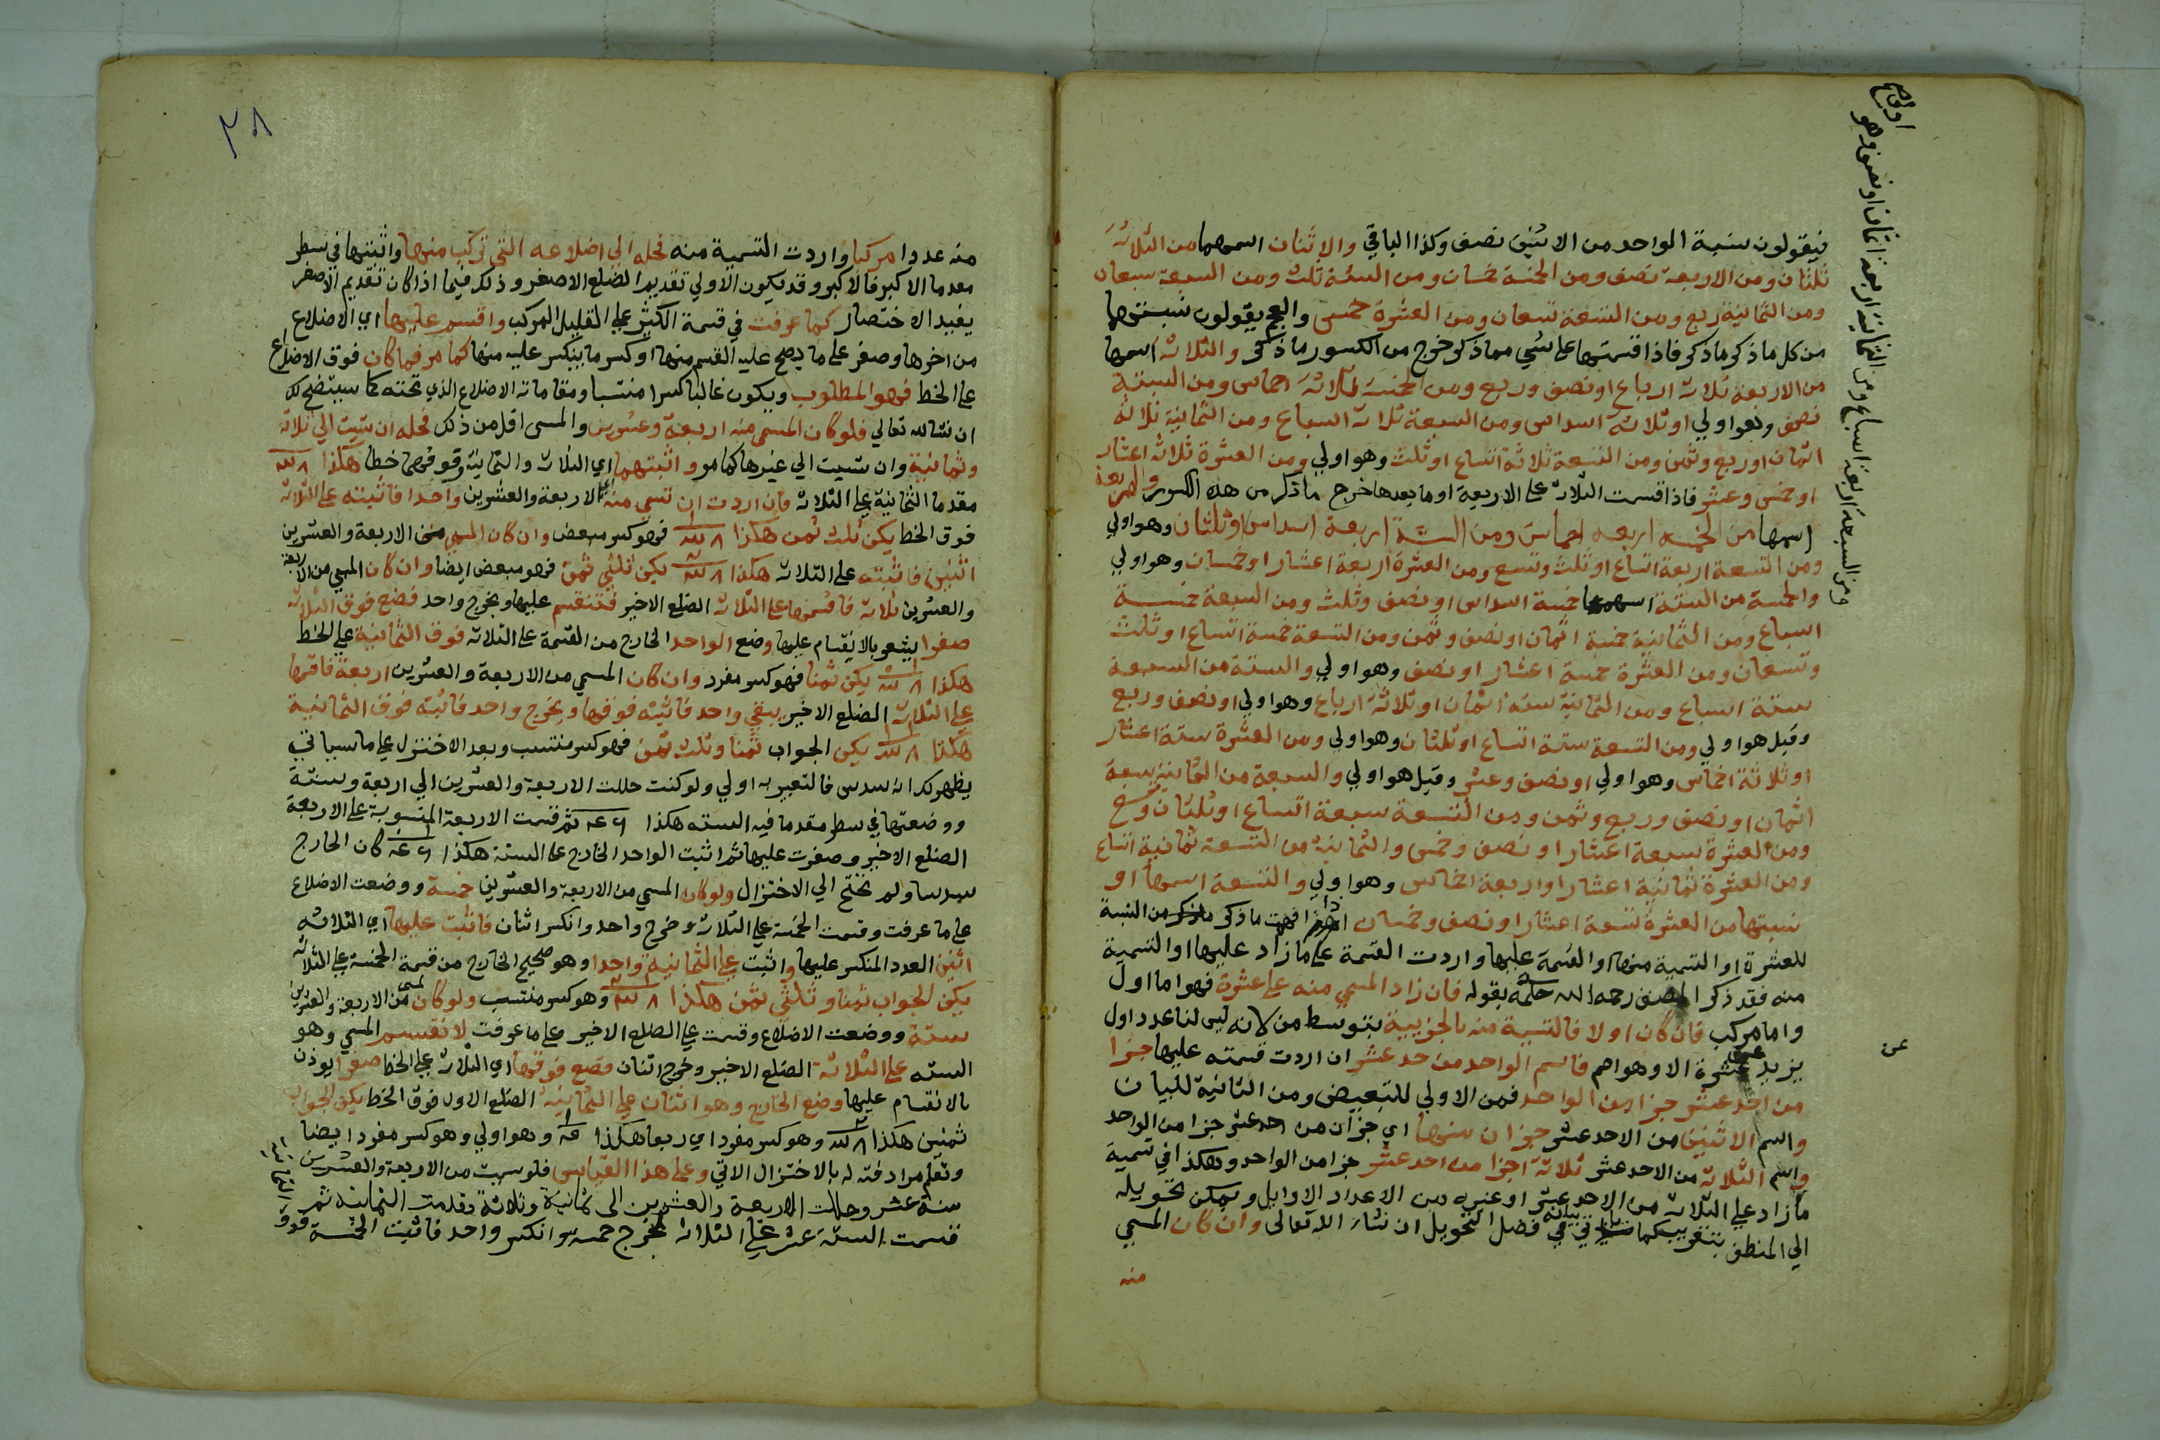 فيقولون نسبة الواحد من الاثنين نصف وكذا الباقي والاثنان اسمهما من الثلاثة
ثلثان ومن الاربعة نصف ومن الخمسة خمسان ومن الستة ثلث ومن السبعة سبعان
ومن الثمانية ربع ومن التسعة تسعان ومن العشرة خمس والعجم يقولون نسبتهما
من كل ماذكر ماذكر فاذا قسمتهما على شي مما ذكر خرج من الكسور ماذكر والثلاثة اسمها
من الاربعة ثلاثة ارباع او نصف وربع ومن الخمسة ثلاثة اخماس ومن الستة
نصف وهو اولي او ثلاثة اسداس ومن السبعة ثلاثة اسباع ومن الثمانية ثلاثة
اثمان او ربع وثمن ومن التسعة ثلاثة اتساع او ثلث وهو اولي ومن العشرة ثلاثة اعشار
او خمس وعشر فاذا قسمت الثلاثة على الاربعة او ما بعدها خرج ماذكر من هذه الكسور والاربعة
اسمها من الخمسة اربعة اخماس ومن الستة اربعة اسداس او ثلثان وهو اولي
ومن التسعة اربعة اتساع او ثلث وتسع ومن العشرة اربعة اعشار او خمسان وهو اولي
والخمسة من الستة اسمها خمسة اسداس او نصف وثلث ومن السبعة خمسة
اسباع ومن الثمانية خمسة اثمان او نصف وثمن ومن التسعة خمسة اتساع او ثلث
وتسعان ومن العشرة خمسة اعشار او نصف وهو اولي والستة من السبعة
ستة اسباع ومن الثمانية ستة اثمان او ثلاثة ارباع وهو اولي او نصف وربع
وقيل هو اولي ومن التسعة ستة اتساع او ثلثان وهو اولي ومن العشرة ستة اعشار
او ثلاثة اخماس وهو اولي او نصف وعشر وقيل هو اولي والسبعة من الثمانية سبعة
اثمان او نصف وربع وثمن ومن التسعة سبعة اتساع او ثلثان وتسع
ومن العشرة سبعة اعشار او نصف وخمس والثمانية من التسعة ثمانية اتساع
ومن العشرة ثمانية اعشار او اربعة اخماس وهو اولي والتسعة اسمها او
نسبتها من العشرة تسعة اعشار او نصف وخمسان فهمت ماذكر من النسبة
للعشرة او التسمية منها او القسمة عليها واردت القسمة على ما زاد عليها او التسمية
منه فقد ذكر المصنف رحمه الله حكمه بقوله فان زاد المسمي منه على عشرة فهو اما اول
واما مركب فان كان اولا فالتسمية منه بالجزيية بتوسط من لانه ليس لنا عدد اول
يزيد على عشرة الا وهو اصم فاسم الواحد من احد عشر ان اردت قسمته عليها جزا
من احد عشر جزا من الواحد فمن الاولي للتبعيض ومن الثانية للبيان
واسم الاثنين من الاحد عشر جزان منها اي جزآن من احد عشر جزا من الواحد
واسم الثلاثة من الاحد عشر ثلاثة اجزا من احد عشر جزا من الواحد وهكذا في تسمية
مازاد على الثلاثة من الاحد عشر او غيره من الاعداد الاوايل ويمكن تحويله
الي المنطق بتقريب كما بيانه في فصل التحويل ان شاء الله تعالى وان كان المسمي
منه
ومن السبعة اربعة اسباع ومن الثمانية اربعة اثمان او نصف وهو
اوضح
عن
٣٨
منه عددا مركبا واردت التسمية منه فحله الي اضلاعه التي تركب منها واثبتها في سطر
مقدما الاكبر فالاكبر وقد يكون الاولي تقديم الضلع الاصغر وذلك فيما اذا كان تقديم الاصغر
يفيد الاختصار كما عرفت في قسمة الكثير على القليل المركب واقسم عليها اي الاضلاع
من اخرها وصفر على ما يصح عليه القسم منها او كسر ما ينكسر عليه منها كما مر فما كان فوق الاضلاع
على الخط فهو المطلوب ويكون غالبا كسرا منتسبا ومقاماته الاضلاع الذي تحته كما سيتضح لك
ان شا الله تعالي فلو كان المسمي منه اربعة وعشرين والمسمى اقل من ذلك فحله ان شيت الي ثلاثة
وثمانية وان شيت الي غيرها كما مر واثبتهما اي الثلاثة والثمانية وفوقهما خطا هكذا
مقدما الثمانية على الثلاثة فان اردت ان تسمي منه اي الاربعة والعشرين واحدا فاثبته على الثلاثة
فوق الخط يكن ثلث ثمن هكذا فهو كسر مبعض وان كان المسمي من الاربعة والعشرين
اثنين فاثبته على الثلاثة هكذا يكن ثلثي ثمن فهو مبعض ايضا وان كان المسمي من الاربعة
والعشرين ثلاثة فاقسمها على الثلاثة الضلع الاخير فتنقسم عليها ويخرج واحد فضع فوق الثلاثة
صفرا يشعر بالانقسام عليها وضع الواحد الخارج من القسمة على الثلاثة فوق الثمانية على الخط
هكذا يكن ثمنا فهو كسر مفرد وان كان المسمي من الاربعة والعشرين اربعة فاقسمها
على الثلاثة الضلع الاخير يبقي واحد فاثبته فوقها ويخرج واحد فاثبته فوق الثمانية
هكذا يكن الجواب ثمنا وثلث ثمن فهو كسر منتسب وبعد الاختزل على ما سياتي
يظهر لك انه سدس فالتعبير به اولي ولو كنت حللت الاربعة والعشرين الي اربعة وستة
ووضعتها في سطر مقدما فيه الستة هكذا ثم قسمت الاربعة المنسوبة على الاربعة
الضلع الاخير وصفرت عليها ثم اثبت الواحد الخارج على الستة هكذا كان الخارج
سدسا ولم تحتج الي الاختزال ولو كان المسمي من الاربعة والعشرين خمسة ووضعت الاضلاع
على ما عرفت وقسمت الخمسة على الثلاثة وخرج واحد وانكسر اثنان فاثبت عليها اي الثلاثة
اثنين العدد المنكسر عليها واثبت على الثمانية واحدا وهو صحيح الخارج من قسمة الخمسة على الثلاثة
يكن الجواب ثمنا وثلثي ثمن هكذا وهو كسر منتسب ولو كان المسمى من الاربعة والعشرين
ستة ووضعت الاضلاع وقسمت على الضلع الاخير وعلى ما عرفت لانقسم المسمي وهو
الستة على الثلاثة الضلع الاخير وخرج اثنان فضع فوقها اي الثلاثة على الخط صفرا يوذن
بالانقسام عليها وضع الخارج وهو اثنان على الثمانية الضلع الاول فوق الخط يكن الجواب
ثمنين هكذا وهو كسر مفرد اي ربعا هكذا وهو اولي وهو كسر مفرد ايضا
وتعلم مرادفته له بالاختزال الاتي وعلى هذا القياس فلو سميت من الاربعة والعشرين
ستة عشر وحللت الاربعة والعشرين الى ثمانية وثلاثة وقدمت الثمانية ثم
قسمت الستة عشر على الثلاثة لخرج خمسة وانكسر واحد فاثبت الخمسة فوق